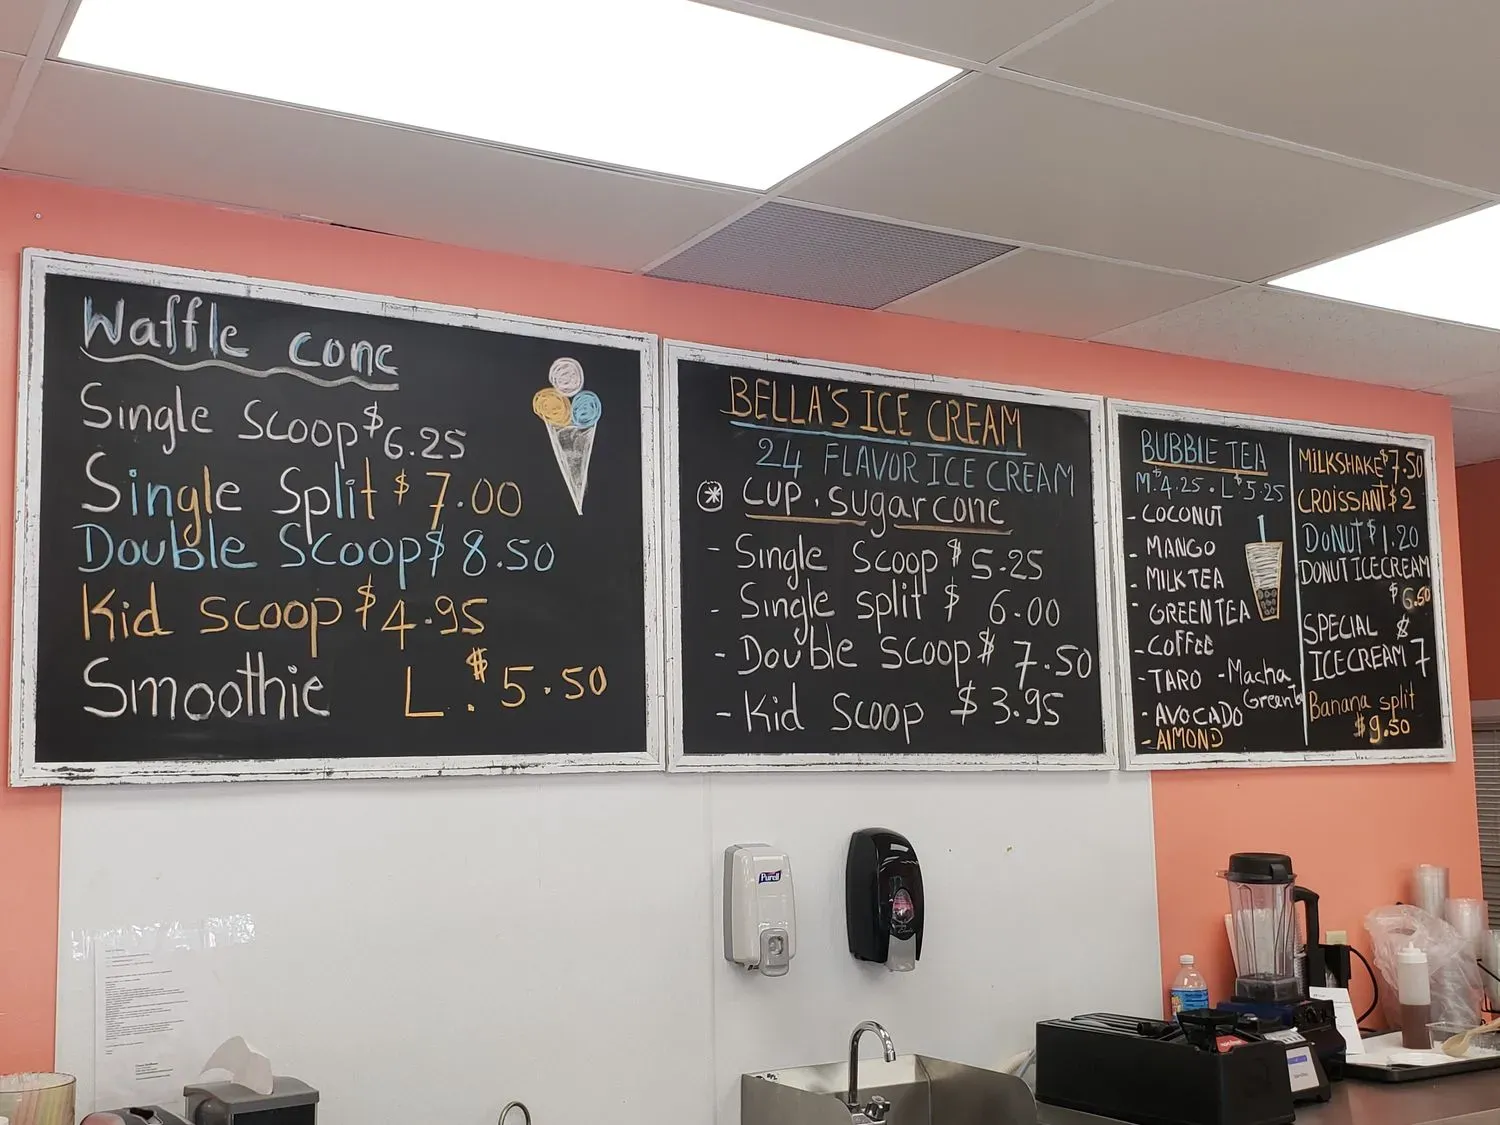 Waffle cone
Single Scoop $6.25
Single Split $7.00
Double Scoop $8.50
Kid scoop $4.95
Smoothie L. $5.50
BELLA'S ICE CREAM
24 FLAVOR ICE CREAM
* CUP. sugar cone
- Single Scoop $5.25
- Single split $6.00
- Double scoop $7.50
- Kid Scoop $3.95
BUBBLE TEA
M.$4.25. L$5.25
- COCONUT
- MANGO
- MILK TEA
- GREEN TEA
- COFFEE
- TARO - Macha
Greante
- AVOCADO
- AlMOND
MILKSHAKE $7.50
CROISSANT $2
DONUT $1.20
DONUT ICECREAM
$6.50
SPECIAL $
ICECREAM 7
Banana split
$9.50
Purell